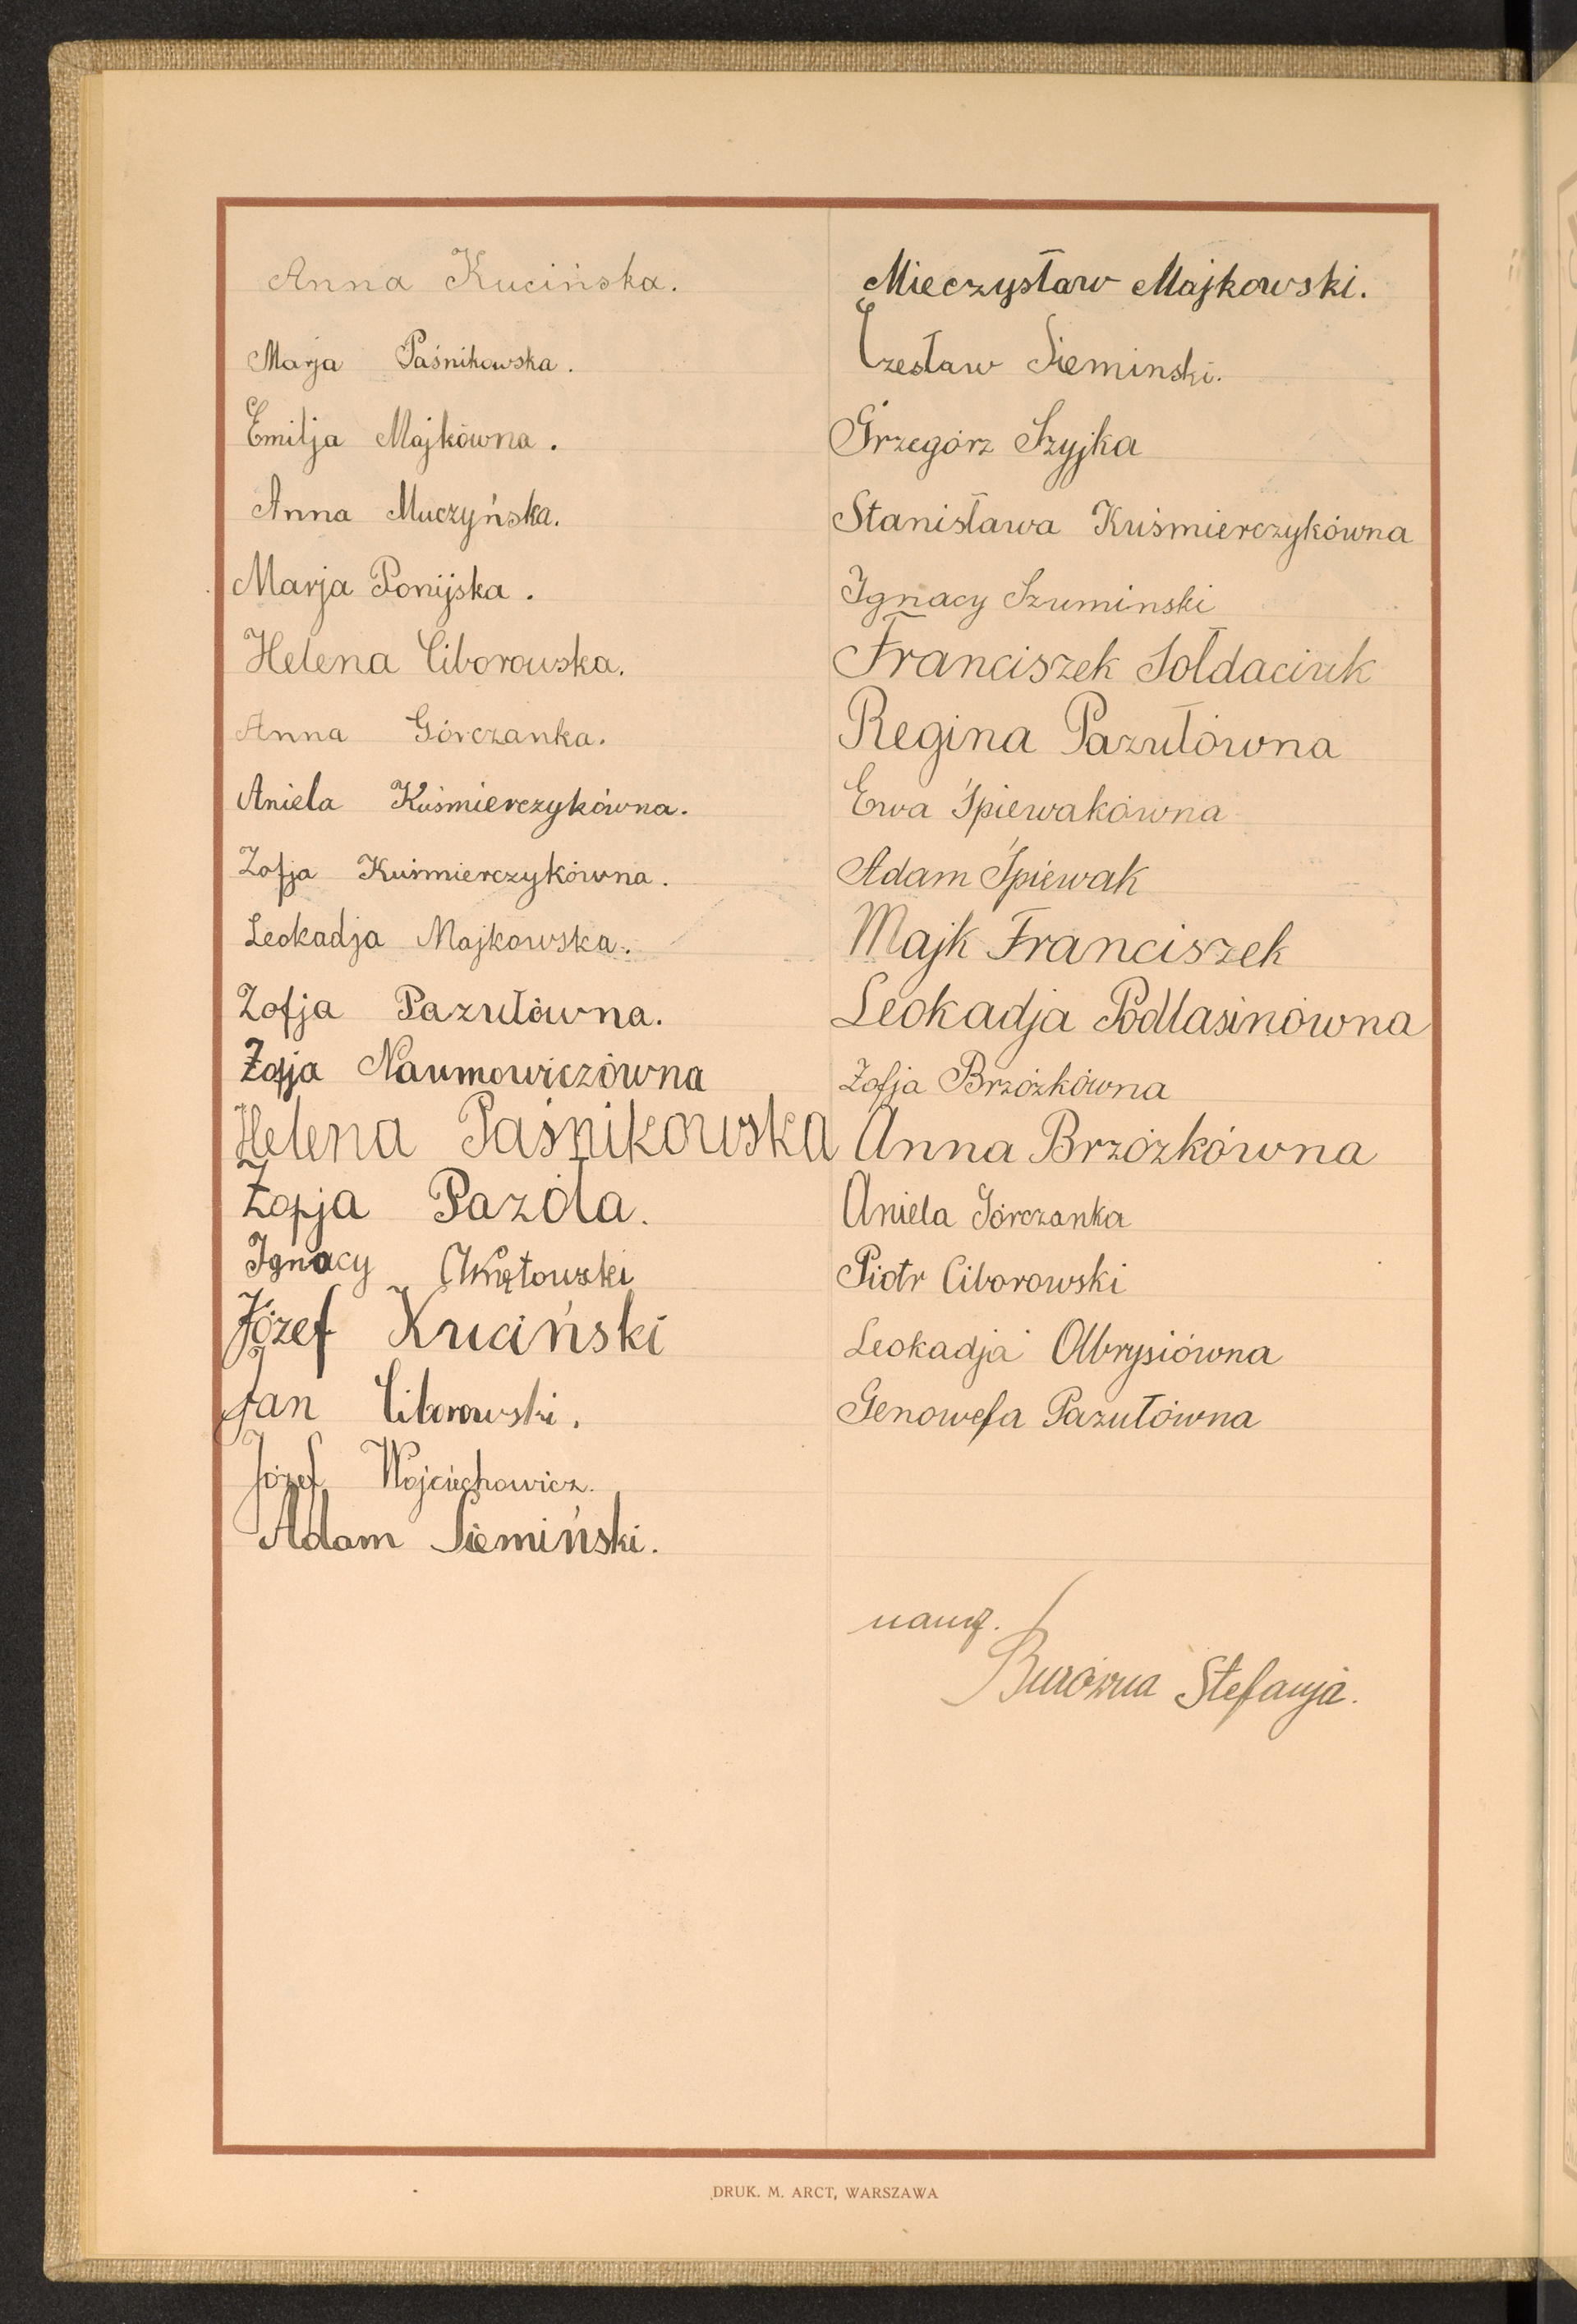 Anna Kucińska.
Marja Paśnikowska.
Emilja Majkówna.
Anna Muczyńska.
Marja Ponijska.
Helena Ciborowska.
Anna Górczanka.
Aniela Kuśmierczykówna.
Zofja Kuśmierczykówna.
Leokadja Majkowska.
Zofja Pazułówna.
Zofja Naumowiczówna
Helena Paśnikowska
Zofja Pazóła.
Ignacy
Józef Kuciński
Jan Ciborowski.
Józef Wojciechowicz.
Adam Siemiński.
Mieczysław Majkowski.
Czesław Sieminski.
Grzegórz Szyjka
Stanisława Kuśmierczykówna
Ignacy Szuminski
Franciszek Sołdaciuk
Regina Pazułówna
Ewa Śpiewakówna
Adam Śpiewak
Majk Franciszek
Leokadja Podlasinówna
Zofja Brzózkówna
Anna Brzózkówna
Aniela Górczanka
Piotr Ciborowski
Leokadja Olbrysiówna
Genowefa Pazułówna
naucz.
Burówna Stefanja.
DRUK. M. ARCT, WARSZAWA